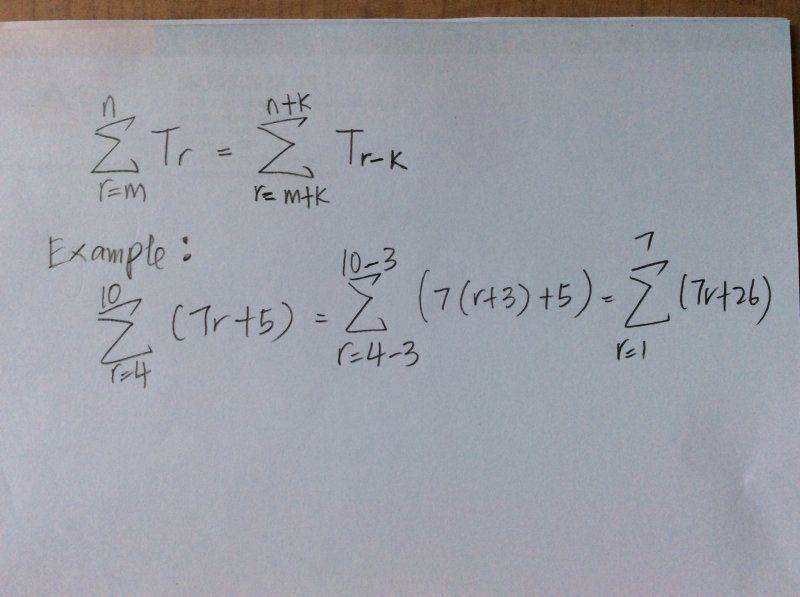 $\sum_{r=m}^{n} T_r = \sum_{r=m+k}^{n+k} T_{r-k}$
Example:
$\sum_{r=4}^{10} (7r+5) = \sum_{r=4-3}^{10-3} (7(r+3)+5) = \sum_{r=1}^{7} (7r+26)$